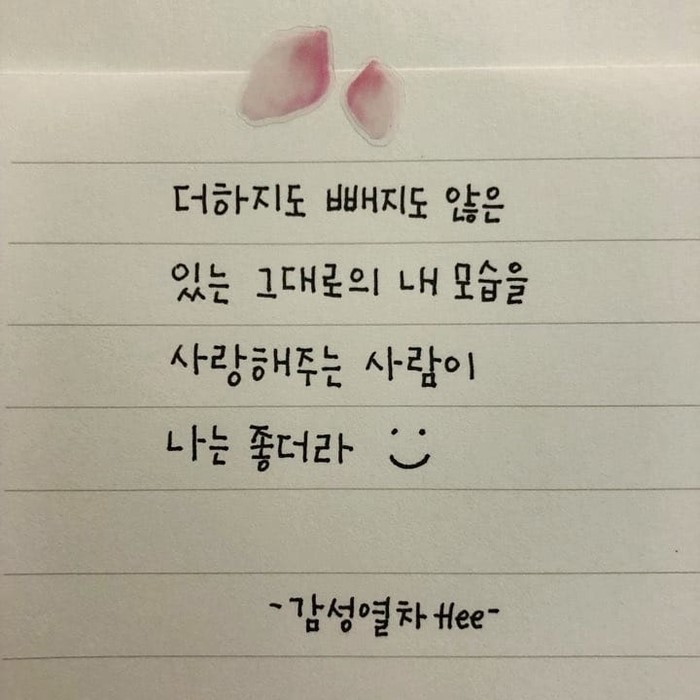 더하지도 빼지도 않은
있는 그대로의 내 모습을
사랑해주는 사람이
나는 좋더라
-감성열차 Hee-